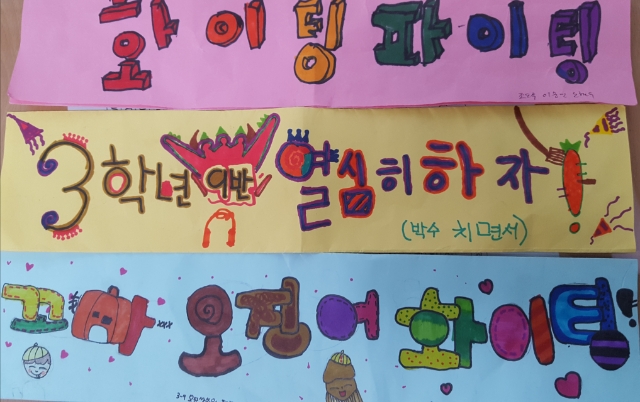 화이팅 파이팅
3학년 9반 열심히 하자!
(박수 치면서)
꼬마 오징어 화이팅!!
3-9